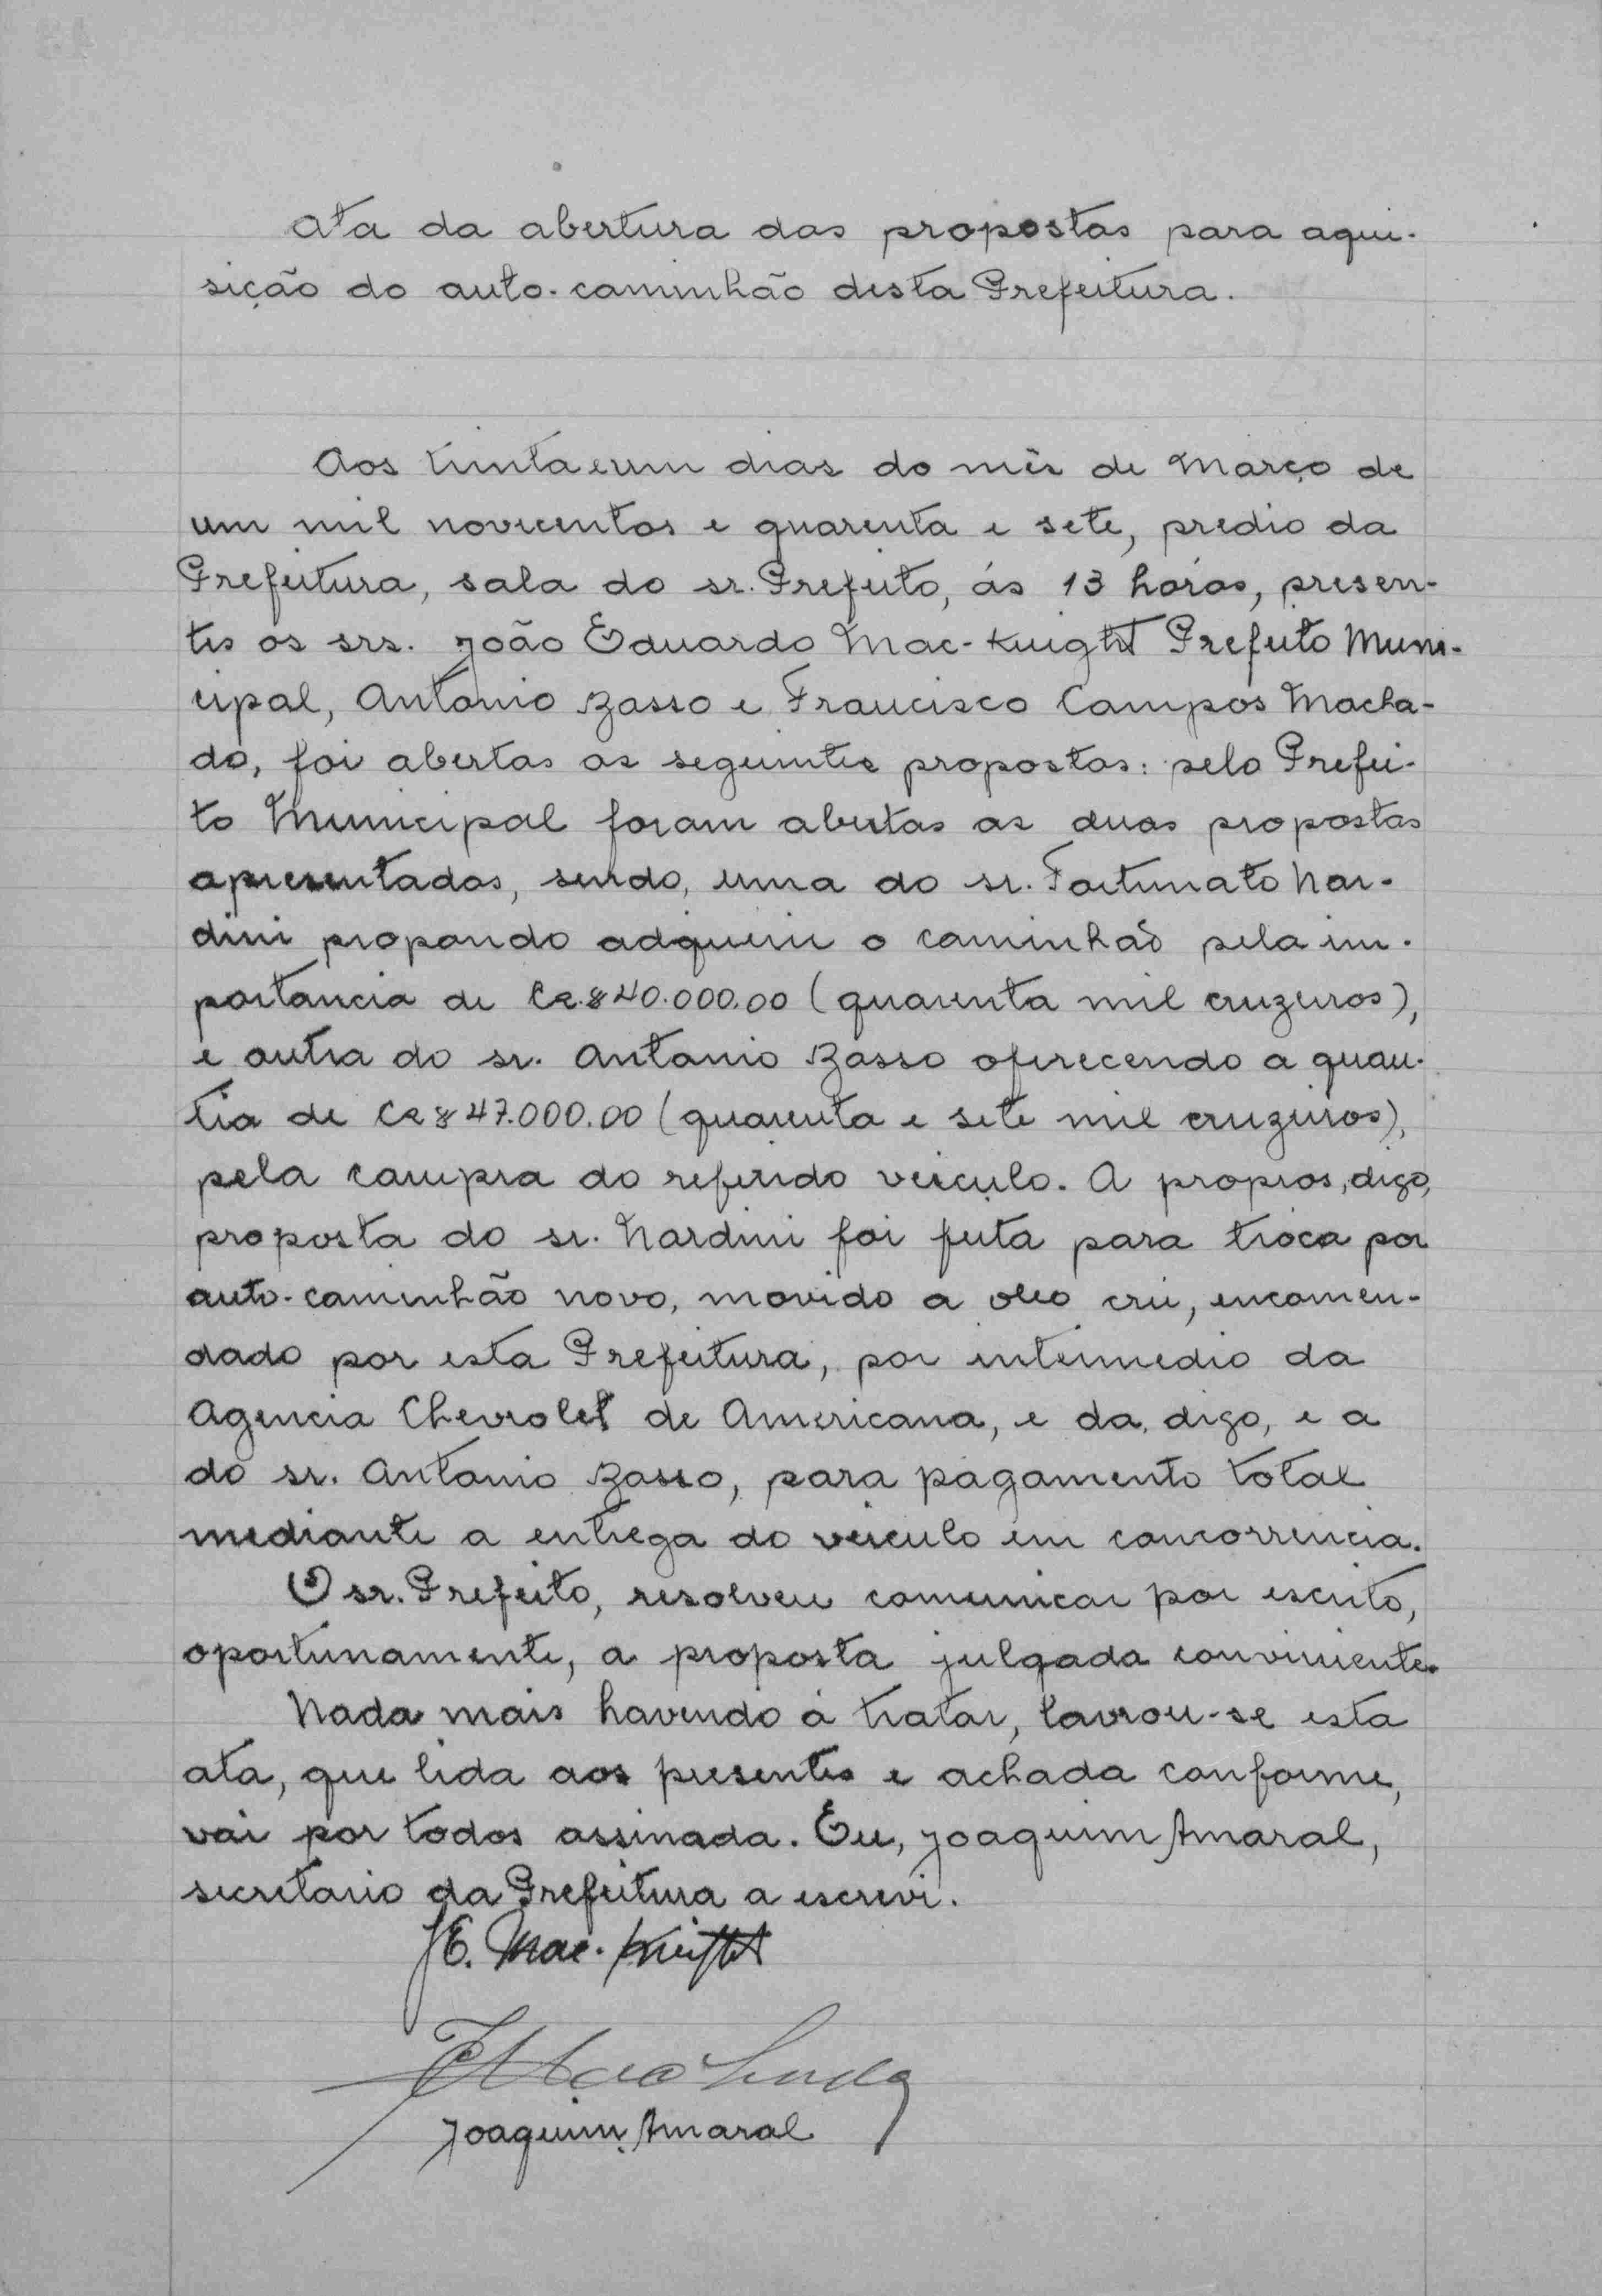 Ata da abertura das propostas para aqui-
sição do auto-caminhão desta Prefeitura.
Aos trinta e um dias do mês de Março de
um mil novecentos e quarenta e sete, predio da
Prefeitura, sala do sr. Prefeito, ás 13 horas, presen-
tes os srs. João Eduardo Mac-Knight Prefeito Muni-
cipal, Antonio Zasso e Francisco Campos Macha-
do, foi abertas as seguintes propostas: pelo Prefei-
to Municipal foram abertas as duas propostas
apresentadas, sendo, uma do sr. Fortunato Nar-
dini propondo adquirir o caminhão pela im-
portancia de Cr.$40.000,00 (quarenta mil cruzeiros),
e outra do sr. Antonio Zasso oferecendo a quan-
tia de Cr$47.000,00 (quarenta e sete mil cruzeiros),
pela compra do referido veiculo. A propros, digo,
proposta do sr. Nardini foi feita para troca por
auto-caminhão novo, movido a oleo crú, encomen-
dado por esta Prefeitura, por intermedio da
Agencia Chevrolet de Americana, e da, digo, e a
do sr. Antonio Zasso, para pagamento total
mediante a entrega do veiculo em concorrencia.
O sr. Prefeito, resolveu comunicar por escrito,
oportunamente, a proposta julgada conviniente.
Nada mais havendo á tratar, lavrou-se esta
ata, que lida aos presentes e achada conforme,
vai por todos assinada. Eu, Joaquim Amaral,
secretario da Prefeitura a escrevi.
J E. Mac-Knight
Joaquim Amaral